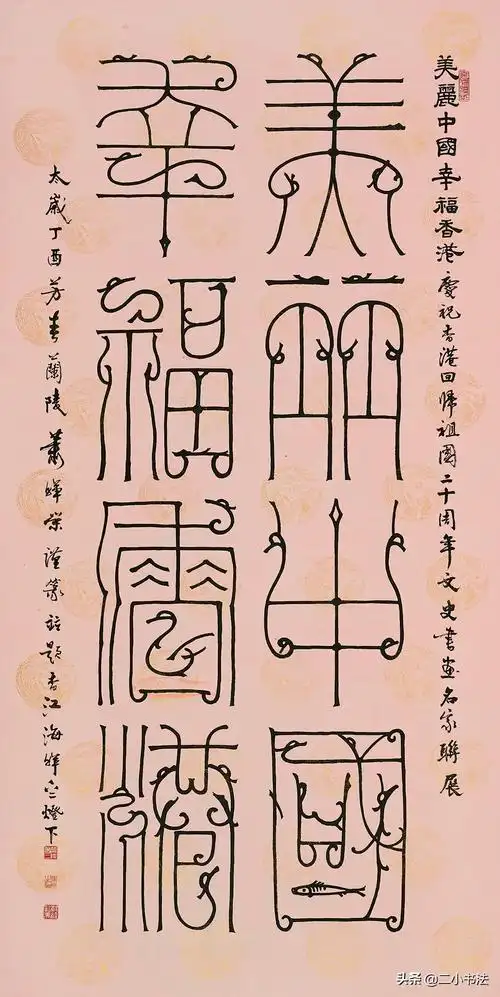 美麗中國幸福香港 慶祝香港回歸祖國二十周年文史書画名家聯展
美丽中國
幸福香港
太歲丁酉芳春蘭陵蕭暉榮謹篆 題香江海暉 燈下
头条 @二小书法